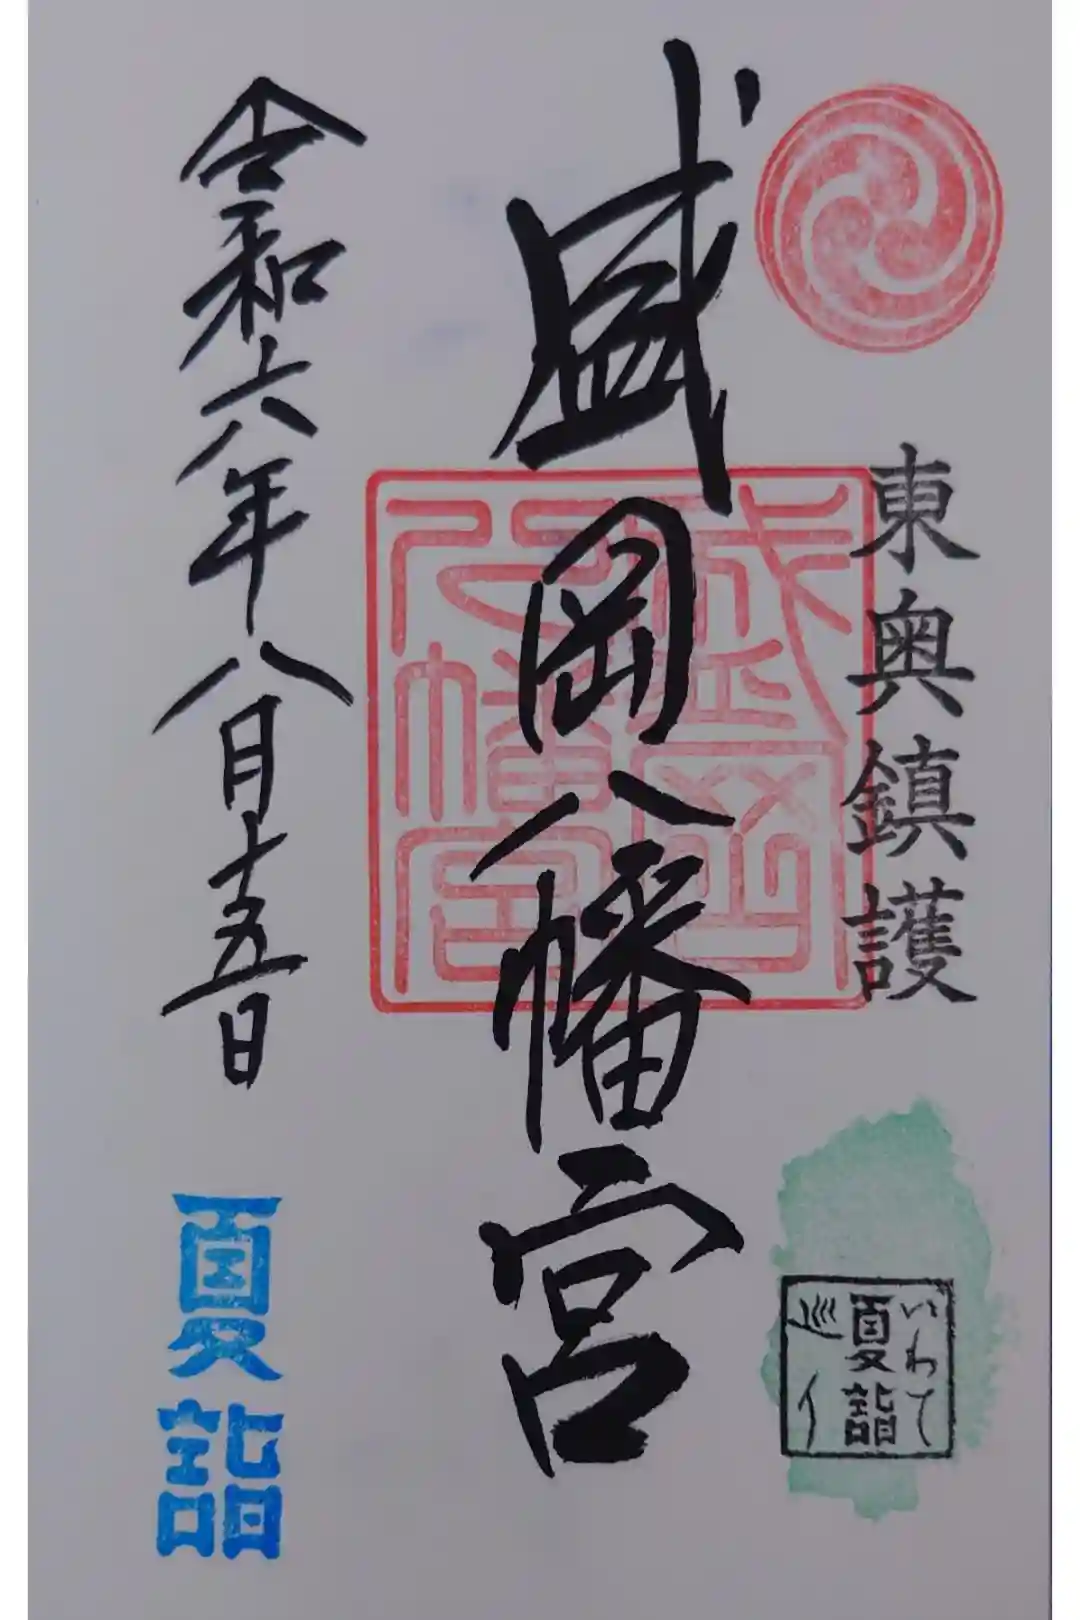 東奥鎮護
盛岡八幡宮
盛岡
八幡宮
令和六年八月十五日
いわて
夏詣
巡り
夏詣